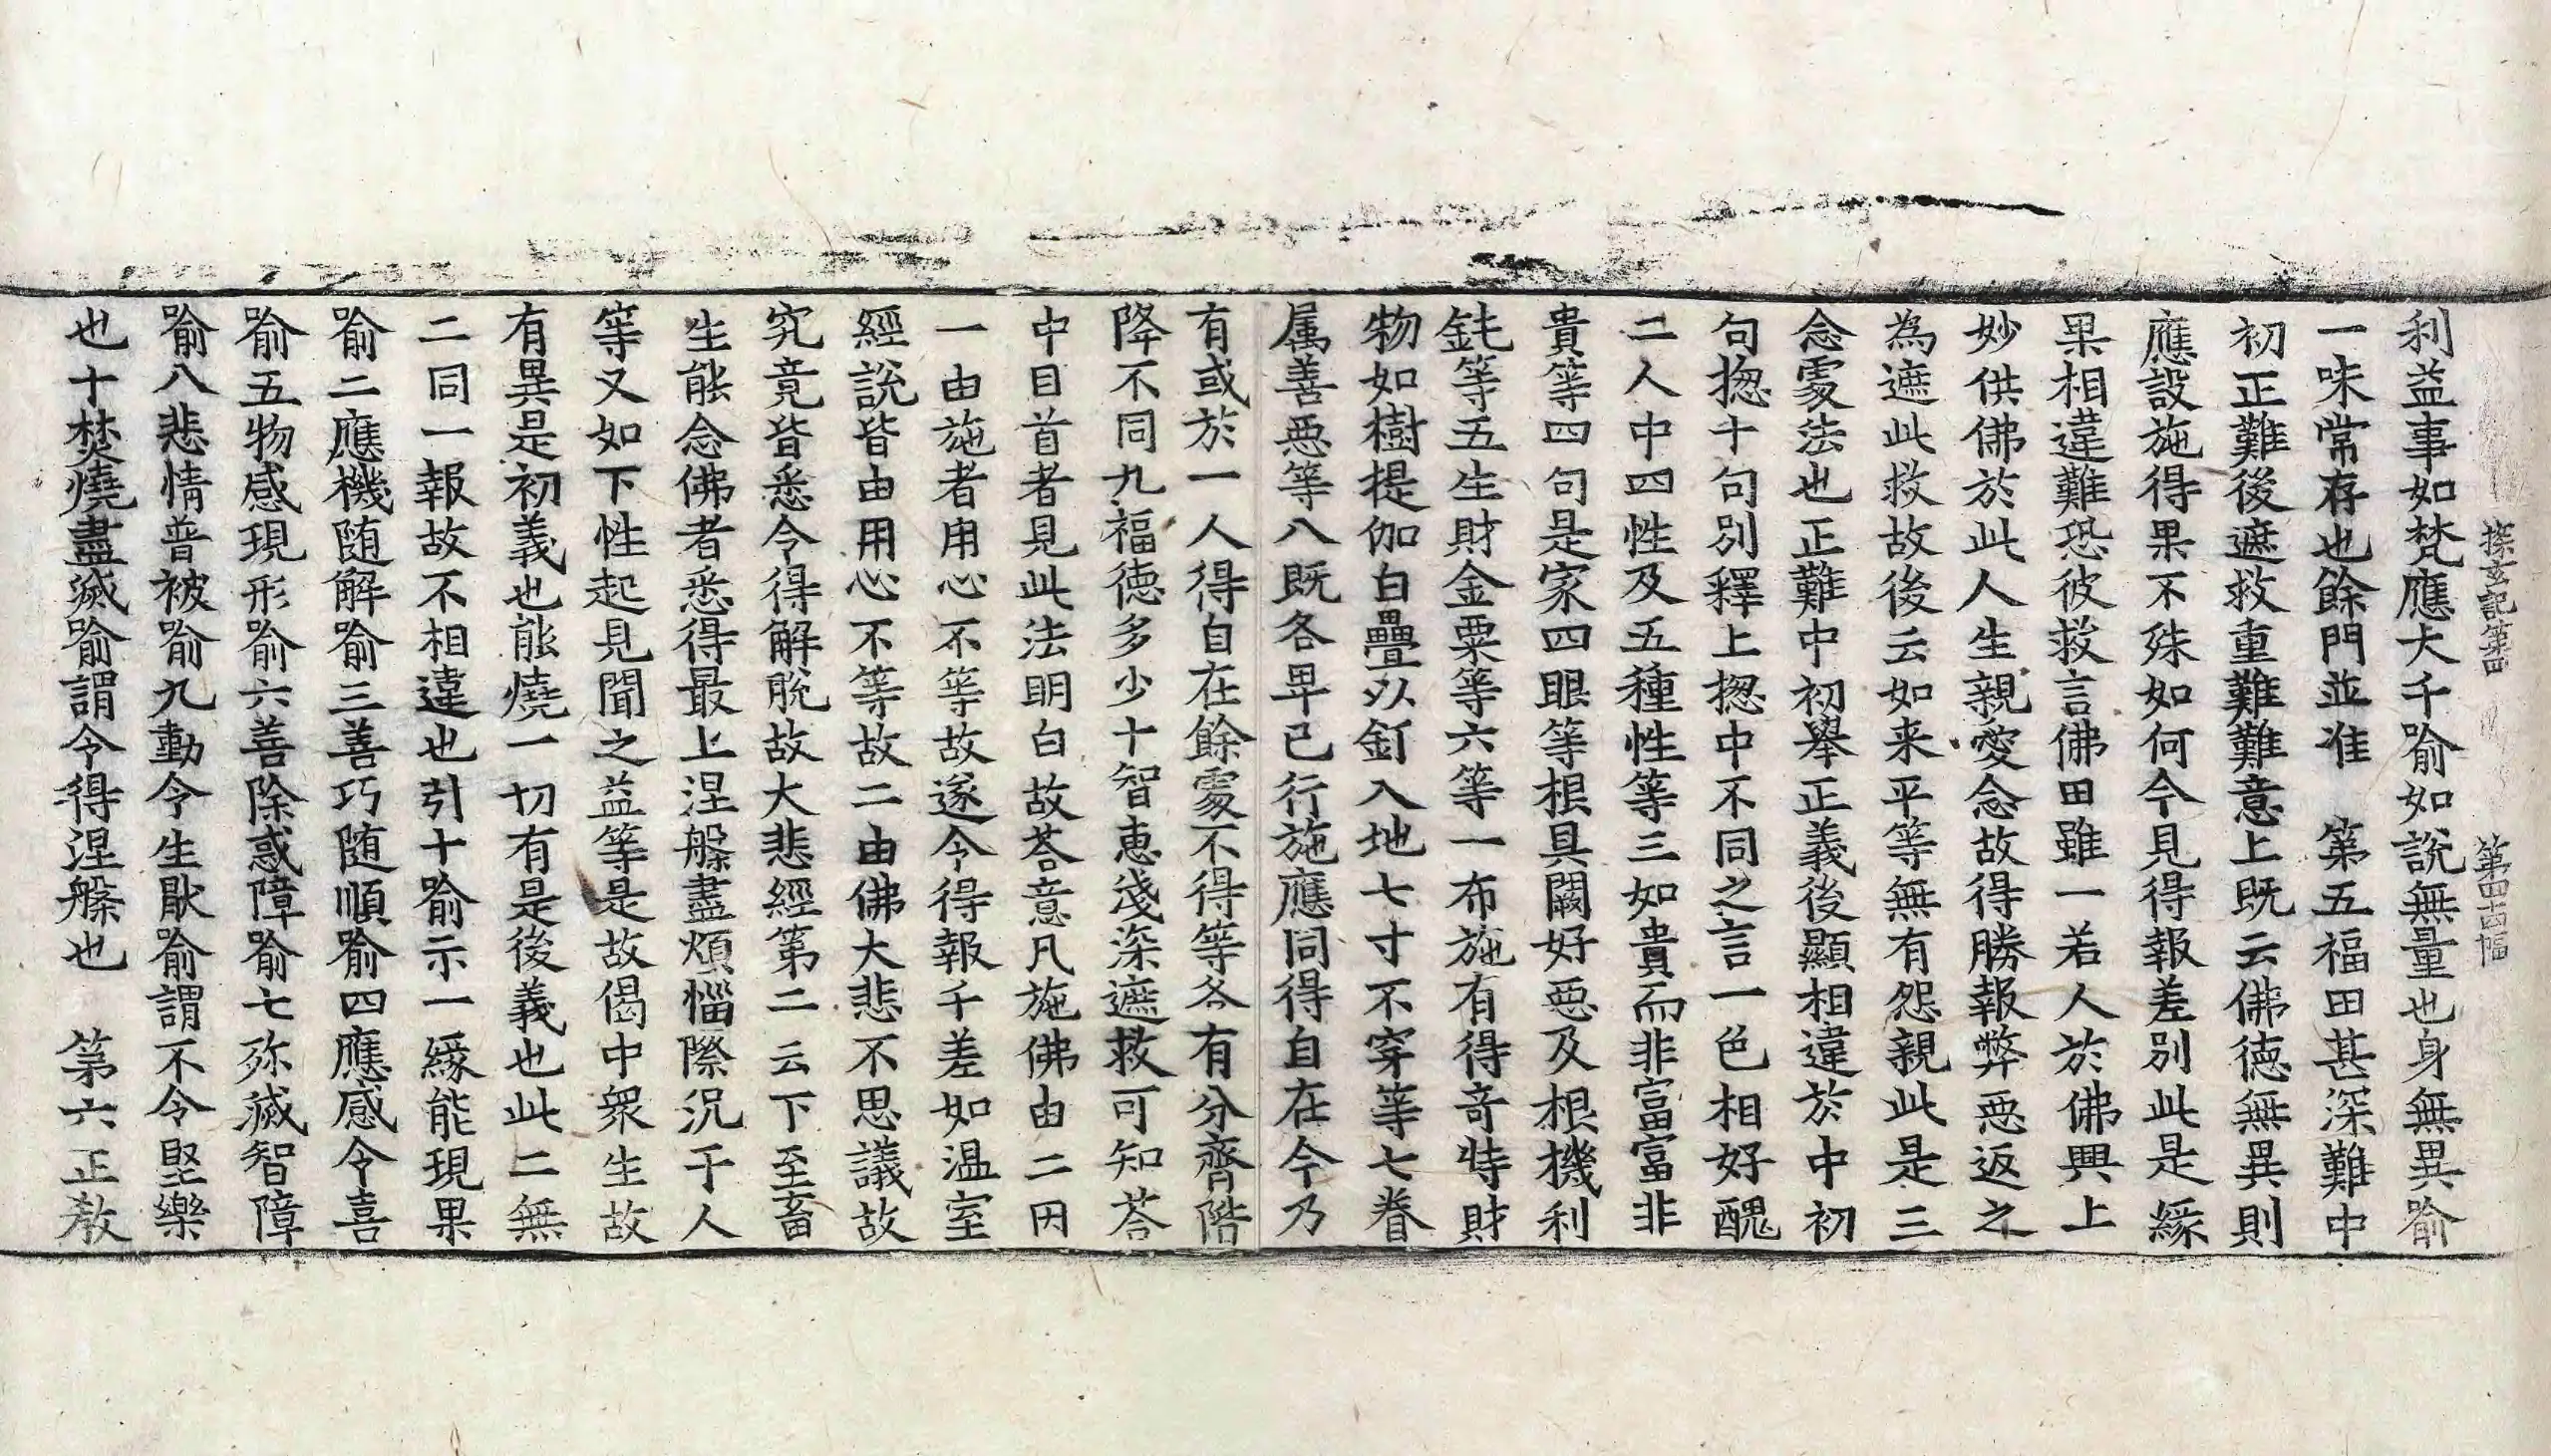 探玄記第四　第四十四幅
利益事如梵應大千喻如說無量也身無異喻
一味常存也餘門並准　第五福田甚深難中
初正難後遮救重難難意上既云佛德無異則
應設施得果不殊如何今見得報差別此是緣
果相違難恐彼救言佛田雖一若人於佛興上
妙供佛於此人生親愛念故得勝報弊惡返之
為遮此救故後云如来平等無有怨親此是三
念處法也正難中初舉正義後顯相違於中初
句揔十句別釋上揔中不同之言一色相好醜
二人中四性及五種性等三如貴而非富富非
貴等四句是家四眼等根具闕好惡及根機利
鈍等五生財金粟等六等一布施有得奇特財
物如樹提伽白疊以釘入地七寸不穿等七眷
属善惡等八既各畢已行施應同得自在今乃
有或於一人得自在餘處不得等各有分齊階
降不同九福德多少十智惠淺深遮救可知荅
中目首者見此法明白故荅意凡施佛由二因
一由施者用心不等故遂令得報千差如温室
經說皆由用心不等故二由佛大悲不思議故
究竟皆悉令得解脫故大悲經第二云下至畜
生能念佛者悉得最上涅槃盡煩惱際況于人
等又如下性起見聞之益等是故偈中衆生故
有異是初義也能燒一切有是後義也此二無
二同一報故不相違也引十喻示一緣能現果
喻二應機随解喻三善巧随順喻四應感令喜
喻五物感現形喻六善除惑障喻七殄滅智障
喻八悲情普被喻九動令生厭喻謂不令堅樂
也十焚燒盡滅喻謂令得涅槃也　第六正教